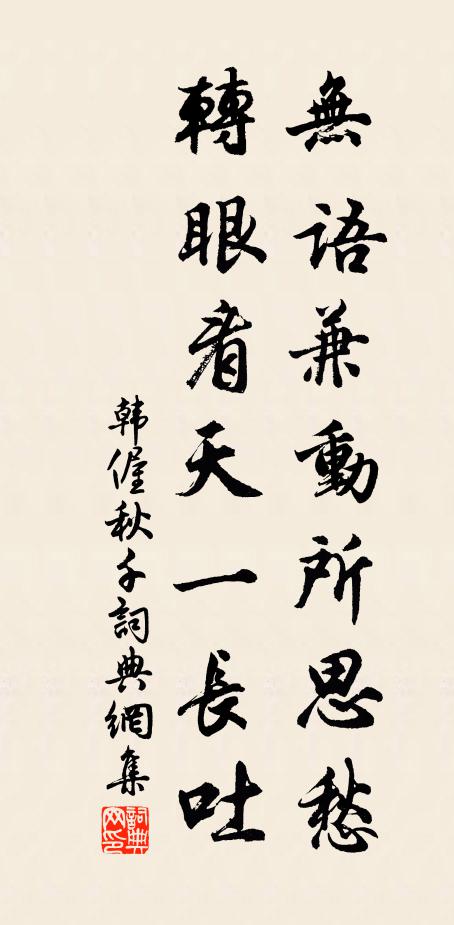 無語兼動所思愁
轉眼看天一長吐
韩偓秋千詞典網集
詞典
网印